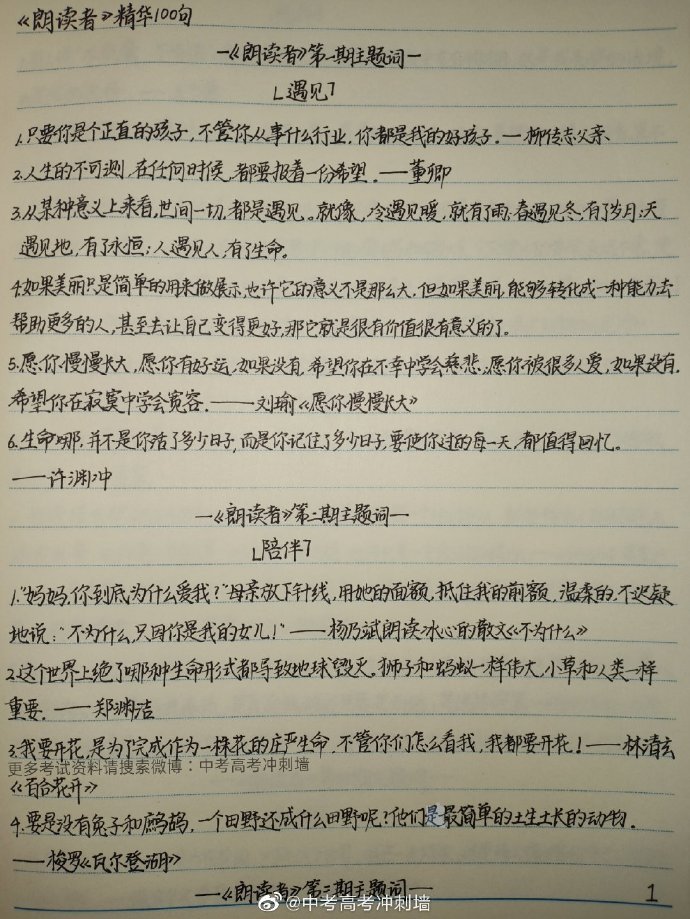 《朗读者》精华100句
—《朗读者》第一期主题词—
「遇见」
1.只要你是个正直的孩子，不管你从事什么行业，你都是我的好孩子。—柳传志父亲
2.人生的不可测，在任何时候，都要报着一份希望。——董卿
3.从某种意义上来看，世间一切，都是遇见。就像，冷遇见暖，就有了雨；春遇见冬，有了岁月；天
遇见地，有了永恒；人遇见人，有了生命。
4.如果美丽只是简单的用来做展示，也许它的意义不是那么大，但如果美丽，能够转化成一种能力，去
帮助更多的人，甚至去让自己变得更好，那它就是很有价值很有意义的了。
5.愿你慢慢长大，愿你有好运，如果没有，希望你在不幸中学会慈悲，愿你被很多人爱，如果没有，
希望你在寂寞中学会宽容。——刘瑜《愿你慢慢长大》
6.生命哪，并不是你活了多少日子，而是你记住了多少日子，要使你过的每一天，都值得回忆。
——许渊冲
—《朗读者》第二期主题词—
「陪伴」
1.“妈妈，你到底为什么爱我？”母亲放下针线，用她的面额，抵住我的前额，温柔的，不迟疑
地说：“不为什么，只因你是我的女儿！”——杨乃斌朗读冰心的散文《不为什么》
2.这个世界上绝了哪种生命形式都导致地球毁灭。狮子和蚂蚁一样伟大，小草和人类一样
重要。——郑渊洁
3.我要开花，是为了完成作为一株花的庄严生命，不管你们怎么看我，我都要开花！——林清玄
更多考试资料请搜索微博：中考高考冲刺墙
《百合花开》
4.要是没有兔子和鹧鸪，一个田野还成什么田野呢？他们是最简单的土生土长的动物。
——梭罗《瓦尔登湖》
—《朗读者》第三期主题词—
@中考高考冲刺墙
1